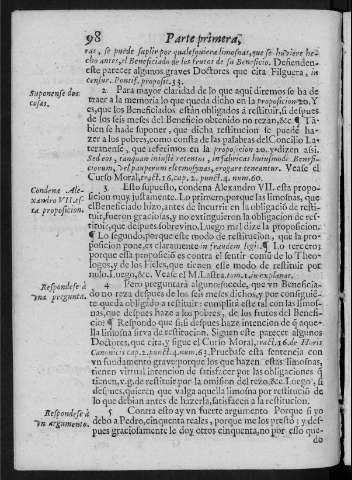 98
Parte primera,
ras, se puede suplir por qualesquiera limosnas, que se huviere he-
cho antes, el Beneficiado de los frutos de su Beneficio. Defienden-
este parecer algunos graves Doctores que cita Filguera, in
censur. Pontif. proposit. 33.
Suponense dos
cosas.
2. Para mayor claridad de lo que aqui diremos se ha de
traer a la memoria lo que queda dicho en la proposicion 20. Y
es, que los Beneficiados están obligados à restituir, si despues
de los seis meses del Beneficio obtenido no rezan, &c. ¶ Ta-
bien se hade suponer, que dicha restitucion se puede ha-
zer a los pobres, como consta de las palabras del Concilio La-
teranense, que referimos en la proposicion 20. y dizen assi.
Sed eos, tanquam miustè retentos, in fabricas huiusmodi Benefi-
ciorum, vel pauperum eleemosynas, erogare teneantur. Vease el
Curso Moral, tract. 16. cap. 2. punct. 4. num. 60.
Condena Ale-
xandro VII. es-
ta proposicion.
3. Esto supuesto, condena Alexandro VII. esta propo-
sicion muy justamente. Lo primero, porque las limosnas, que
el Beneficiado hizo, antes de incurrir en obligacion de resti-
tuir, fueron graciosas, y no extinguieron la obligacion de res-
tituir, que despues sobrevino. Luego mal dize la proposicion.
¶ Lo segundo, porque esse modo de restitucion, que la pro-
posicion pone, es claramente in fraudem legis. ¶ Lo tercero;
porque essa proposicion es contra el sentir comũ de lo Theo-
logos, y de los Fieles, que tienen esse modo de restituir por
nulo. Luego, &c. Vease el M. Lastra tom. 1. in explanat.
Respondese à
vna pregunta.
4. Pero preguntará alguno: sucede, que vn Beneficia-
do no reza despues de los seis meses dichos, y por consiguiẽ-
te queda obligado a restituir: cumplirà este tal con las limos-
nas, que despues haze a los pobres, de los frutos del Benefi-
cio? ¶ Respondo que si: si despues haze intencion de q̃ aque-
lla limosna sirva de restitucion. Siguen este parecer algunos
Doctores, que cita, y sigue el Curso Moral, tract. 16. de Horis
Canonicis cap. 2. punct. 4. num. 63. Pruebase esta sentencia con
vn fundamento grave: porque los que hazen estas limosnas,
tienen virtual intencion de satisfacer por las obligaciones q̃
tienen, v. g. de restituir por la omision del rezo, &c. Luego, si
despues, quieren que valga aquella limosna por restituciõ de
lo que debian antes de hazerla, satisfacen a la restitucion.
Respondese à
vn argumento.
5 Contra esto ay vn fuerte argumento. Porque si yo
debo a Pedro, cinquenta reales, porque me los prestó; y des-
pues graciosamente le doy otros cinquenta, no por esso que-
do